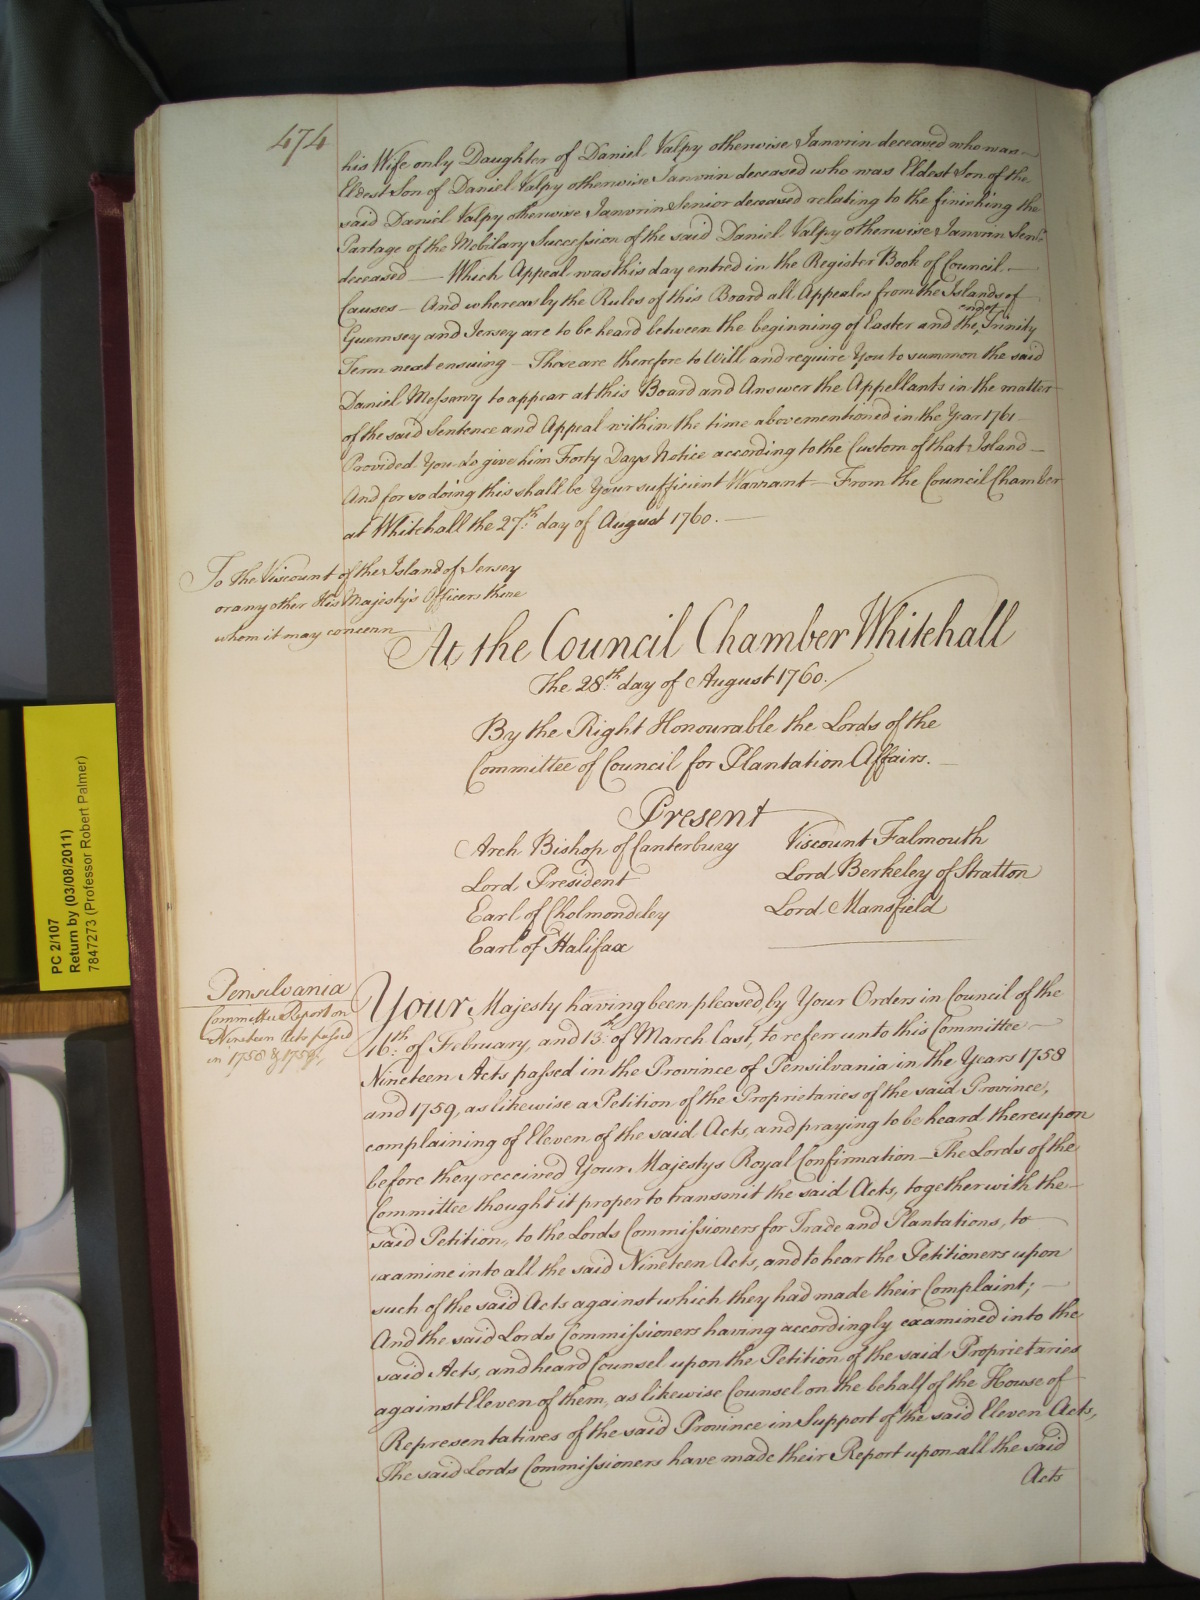 474
his Wife only Daughter of Daniel Valpy otherwise Janvrin deceased who was
Eldest Son of Daniel Valpy otherwise Janvrin deceased who was Eldest Son of the
said Daniel Valpy otherwise Janvrin Senior deceased relating to the finishing the
Partage of the Mobilary Succession of the said Daniel Valpy otherwise Janvrin Senr.
deceased — Which Appeal was this day entred in the Register Book of Council
Causes — And whereas by the Rules of this Board all Appeales from the Islands of
Guernsey and Jersey are to be heard between the beginning of Easter and the end of Trinity
Term next ensuing — These are therefore to Will and require You to summon the said
Daniel Messervy to appear at this Board and Answer the Appellants in the matter
of the said Sentence and Appeal within the time abovementioned in the Year 1761
Provided You do give him Forty Days Notice according to the Custom of that Island —
And for so doing this shall be Your sufficient Warrant — From the Council Chamber
at Whitehall the 27th. day of August 1760. —
To the Viscount of the Island of Jersey
or any other His Majesty's Officers there
whom it may concern
At the Council Chamber Whitehall
The 28th. day of August 1760.
By the Right Honourable the Lords of the
Committee of Council for Plantation Affairs.
Present
Arch Bishop of Canterbury Viscount Falmouth
Lord President Lord Berkeley of Stratton
Earl of Cholmondeley Lord Mansfield
Earl of Halifax
Pensilvania
Committee Report on
Nineteen Acts passed
in 1758 & 1759.
Your Majesty having been pleased, by Your Orders in Council of the
16th. of February, and 13th. of March last, to refer unto this Committee —
Nineteen Acts passed in the Province of Pensilvania in the Years 1758
and 1759, as likewise a Petition of the Proprietaries of the said Province,
complaining of Eleven of the said Acts, and praying to be heard thereupon
before they received Your Majestys Royal Confirmation — The Lords of the
Committee thought it proper to transmit the said Acts, together with the
said Petition, to the Lords Commissioners for Trade and Plantations, to
examine into all the said Nineteen Acts, and to hear the Petitioners upon
such of the said Acts against which they had made their Complaint; —
And the said Lords Commissioners having accordingly examined into the
said Acts, and heard Counsel upon the Petition of the said Proprietaries
against Eleven of them, as likewise Counsel on the behalf of the House of
Representatives of the said Province in Support of the said Eleven Acts,
The said Lords Commissioners have made their Report upon all the said
Acts
PC 2/107
Return by (03/08/2011)
7847273 (Professor Robert Palmer)